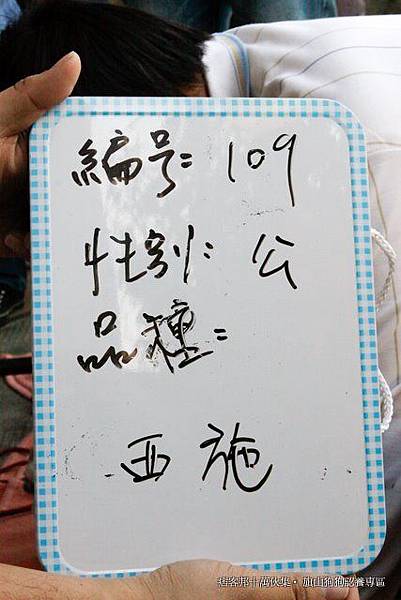 編号：109
性别：公
品種：
西施
痞客邦十萬伙集・旗山狗狗認養專區